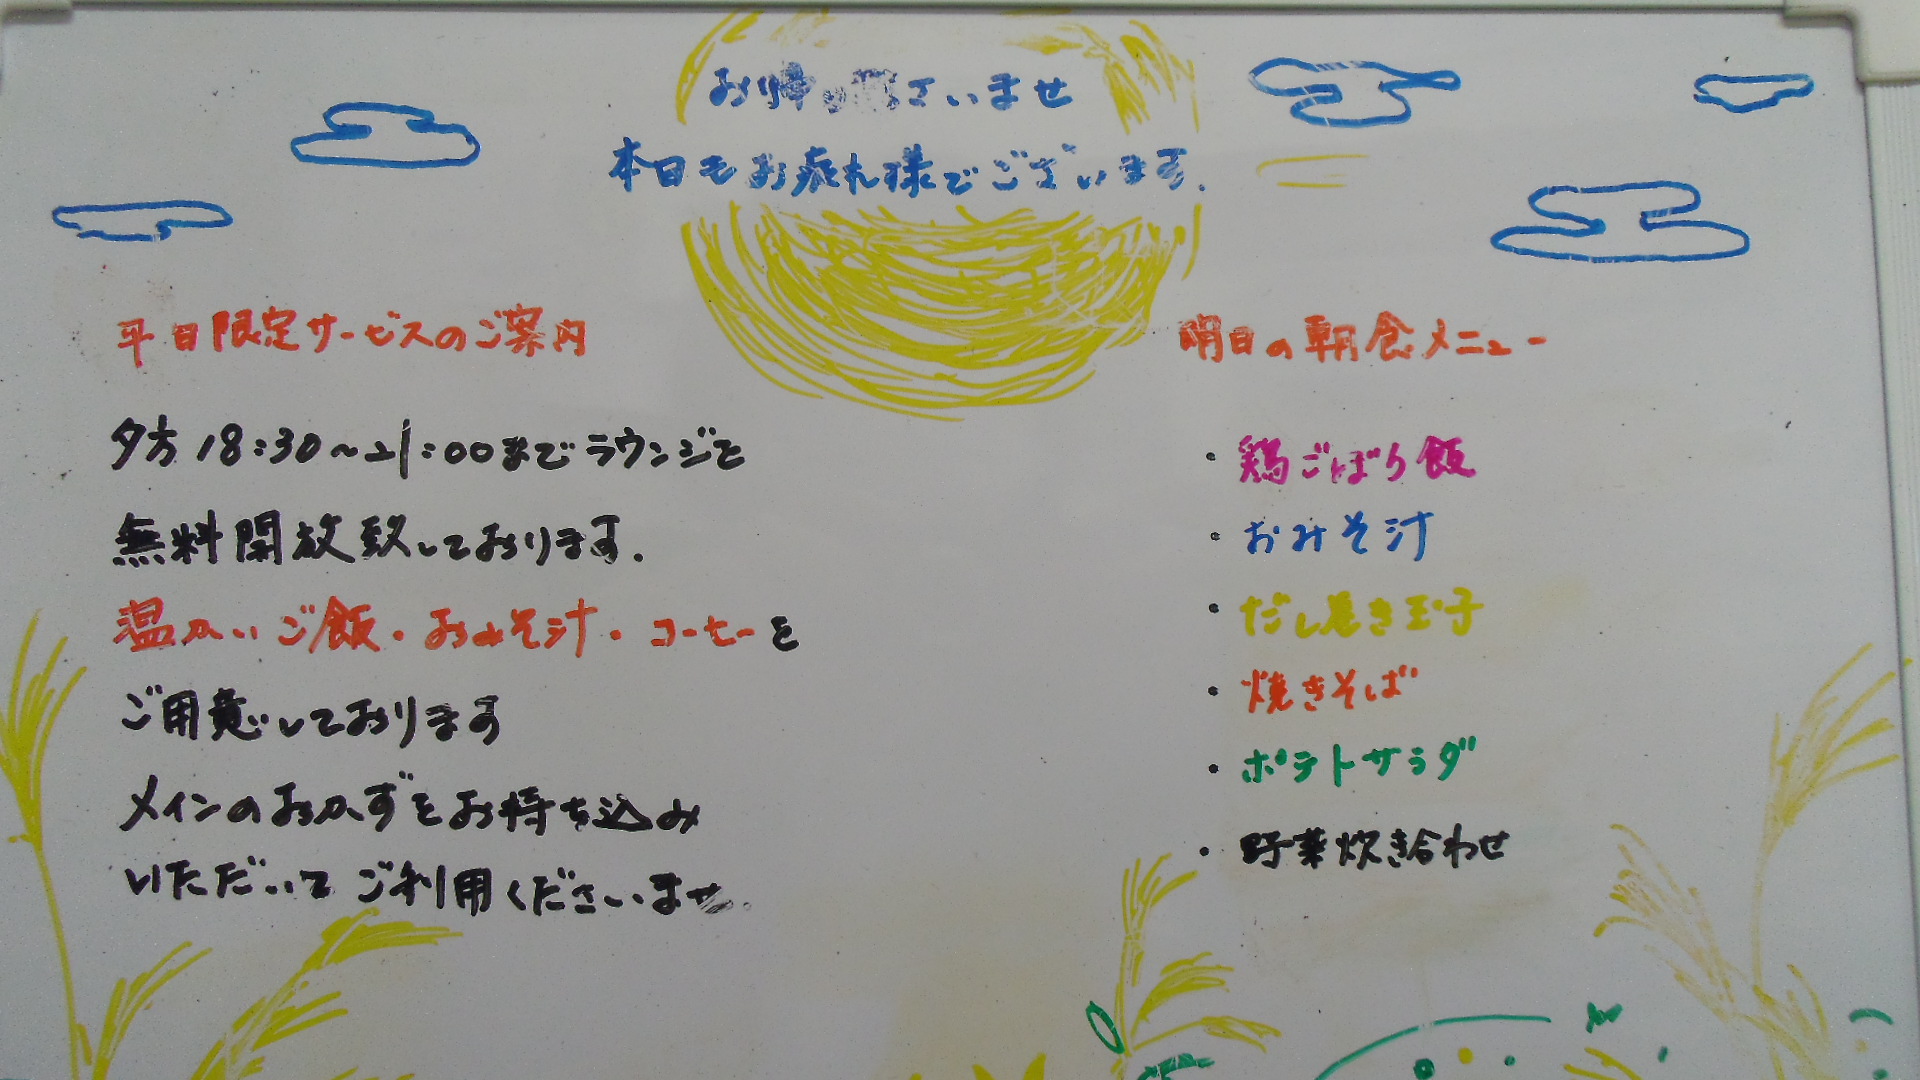 お帰りなさいませ
本日もお疲れ様でございます.
平日限定サービスのご案内
夕方18:30~21:00までラウンジを
無料開放致しております.
温かいご飯・おみそ汁・コーヒーを
ご用意しております
メインのおかずをお持ち込み
いただいてご利用くださいませ.
明日の朝食メニュー
・鶏ごぼう飯
・おみそ汁
・だし巻き玉子
・焼きそば
・ポテトサラダ
・野菜炊き合わせ